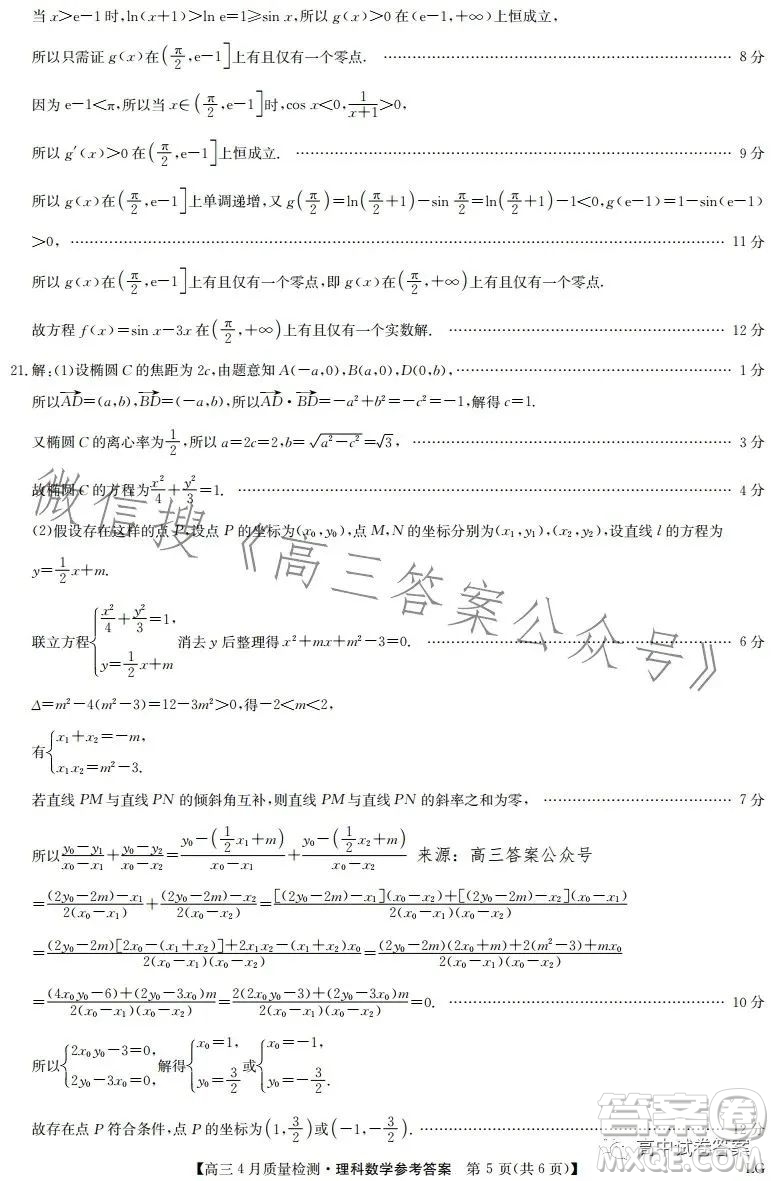 当x>e−1时,ln(x+1)>ln e=1≥sin x,所以g(x)>0在(e−1,+∞)上恒成立,
所以只需证g(x)在(π/2,e−1]上有且仅有一个零点. …… 8分
因为e−1<π,所以当x∈(π/2,e−1]时,cos x<0,1/(x+1)>0,
所以g′(x)>0在(π/2,e−1]上恒成立. …… 9分
所以g(x)在(π/2,e−1]上单调递增,又g(π/2)=ln(π/2+1)−sin π/2=ln(π/2+1)−1<0,g(e−1)=1−sin(e−1)
>0, …… 11分
所以g(x)在(π/2,e−1]上有且仅有一个零点,即g(x)在(π/2,+∞)上有且仅有一个零点.
故方程f(x)=sin x−3x在(π/2,+∞)上有且仅有一个实数解. …… 12分
21.解:(1)设椭圆C的焦距为2c,由题意知A(−a,0),B(a,0),D(0,b), …… 1分
所以AD→=(a,b),BD→=(−a,b),所以AD→·BD→=−a²+b²=−c²=−1,解得c=1.
又椭圆C的离心率为1/2,所以a=2c=2,b=√(a²−c²)=√3, …… 3分
故椭圆C的方程为x²/4+y²/3=1. …… 4分
(2)假设存在这样的点P,设点P的坐标为(x₀,y₀),点M,N的坐标分别为(x₁,y₁),(x₂,y₂),设直线l的方程为
y=1/2x+m.
联立方程{x²/4+y²/3=1, y=1/2x+m 消去y后整理得x²+mx+m²−3=0. …… 6分
Δ=m²−4(m²−3)=12−3m²>0,得−2<m<2,
有{x₁+x₂=−m, x₁x₂=m²−3.
若直线PM与直线PN的倾斜角互补,则直线PM与直线PN的斜率之和为零, …… 7分
所以(y₀−y₁)/(x₀−x₁)+(y₀−y₂)/(x₀−x₂)=(y₀−(1/2x₁+m))/(x₀−x₁)+(y₀−(1/2x₂+m))/(x₀−x₂) 来源：高三答案公众号
=((2y₀−2m)−x₁)/(2(x₀−x₁))+((2y₀−2m)−x₂)/(2(x₀−x₂))=([(2y₀−2m)−x₁](x₀−x₂)+[(2y₀−2m)−x₂](x₀−x₁))/(2(x₀−x₁)(x₀−x₂))
=((2y₀−2m)[2x₀−(x₁+x₂)]+2x₁x₂−(x₁+x₂)x₀)/(2(x₀−x₁)(x₀−x₂))=((2y₀−2m)(2x₀+m)+2(m²−3)+mx₀)/(2(x₀−x₁)(x₀−x₂))
=((4x₀y₀−6)+(2y₀−3x₀)m)/(2(x₀−x₁)(x₀−x₂))=(2(2x₀y₀−3)+(2y₀−3x₀)m)/(2(x₀−x₁)(x₀−x₂))=0. …… 10分
所以{2x₀y₀−3=0, 2y₀−3x₀=0, 解得{x₀=1, y₀=3/2 或{x₀=−1, y₀=−3/2.
故存在点P符合条件,点P的坐标为(1,3/2)或(−1,−3/2). …… 12分
【高三4月质量检测·理科数学参考答案 第5页(共6页)】 LG
微信搜《高三答案公众号》
答案圈
高中试卷答案